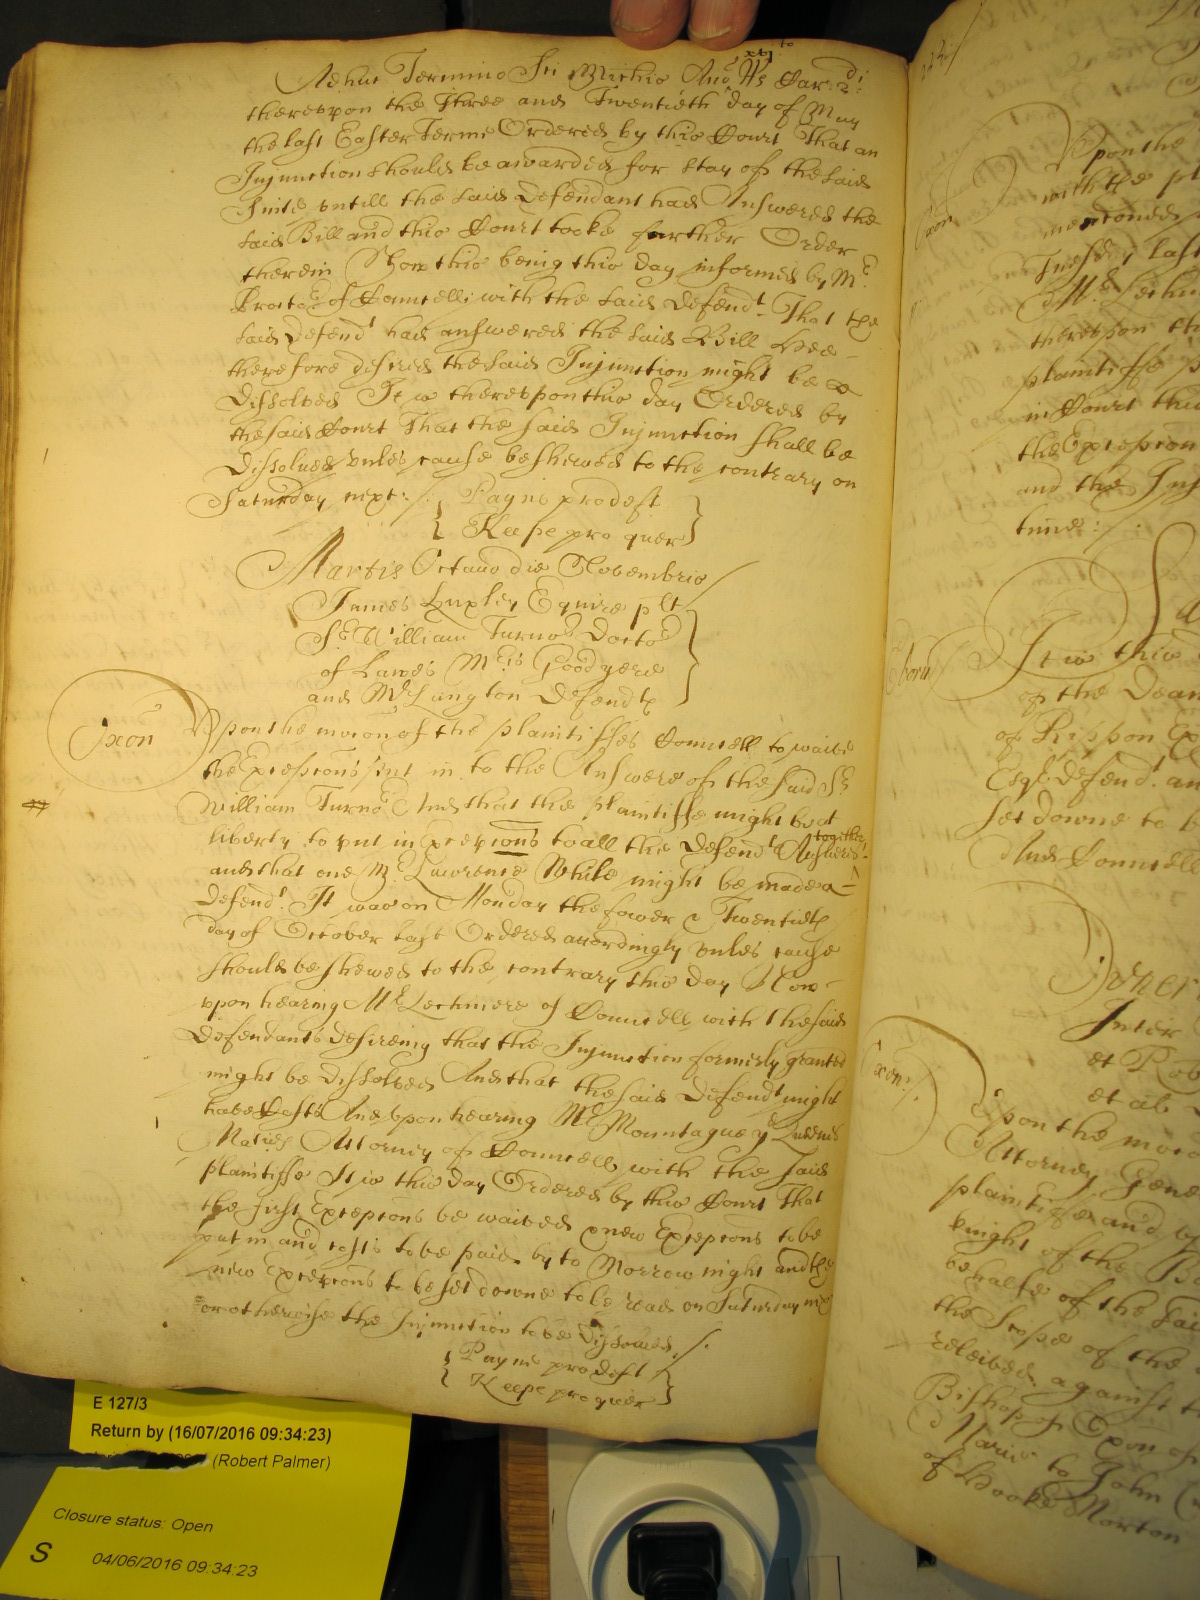 Adhuc Termino Sci Michis Ano Rs Car: 2di: xvjto
therevpon the Three and Twentieth day of May
the last Easter Terme Ordered by this Court That an
Injunction should be awarded for stay of the said
Suite vntill the said Defendant had Answered the
said Bill and this Court tooke further Order
therein Now this being this day informed by Mr.
Proctor of Councell with the said Defendt. That the
said Defendt had answered the said Bill Hee
therefore desired the said Injunction might be
Dissolved It is therevpon this day Ordered by
the said Court That the said Injunction shall be
Dissolved vnles cause be shewed to the contrary on
Saturday next:
Payne pro deft
Keepe pro quer
Martis Octavo die Novembris
James Huxley Esquire plt
Sr William Turnor Doctor
of Lawes Mris Goodyere
and Mr Langton Defendts
Oxon
Vpon the mocon of the plaintiffes Councell to waive
the Excepcons put in to the Answere of the said Sr
William Turnor And that the plaintiffe might be at
liberty to put in Excepcons to all the Defendts Answeres together
and that one Mr. Lawrence White might be made a
Defendt. It was on Monday the fower & Twentieth
day of October last Ordered accordingly vnles cause
should be shewed to the contrary this day Now
vpon hearing Mr Lechmere of Councell with the said
Defendants desireing that the Injunction formerly granted
might be dissolved And that the said Defendt might
have Costs And vpon hearing Mr Mountague ye Queenes
Maties Attorney of Councell with the said
plaintiffe It is this day Ordered by this Court That
the first Excepcons be waived & new Excepcons to be
put in and costs to be paid by to Morrow night and the
new Excepcons to be set downe to be read on Saturday next
or otherwise the Injunction to be Dissolved
Payne pro deft
Keepe pro quer
Vpon the
with the pl
mentioned
Tuesday last
therevpon
plaintiffe
in Court this
the Excepcon
and the Inj
time:
It is this
of the Dean
of Rippon
Esqr. defendt. an
set downe to b
And Councell
Inter
et Rob
et al
Vpon the moco
Attorney Gene
plaintiffe and by
knight of the B
behalfe of the sai
the Scope of the
releived against
Bishop of Oxon
to John
of Hooke Norton
E 127/3
Return by (16/07/2016 09:34:23)
(Robert Palmer)
Closure status: Open
S
04/06/2016 09:34:23